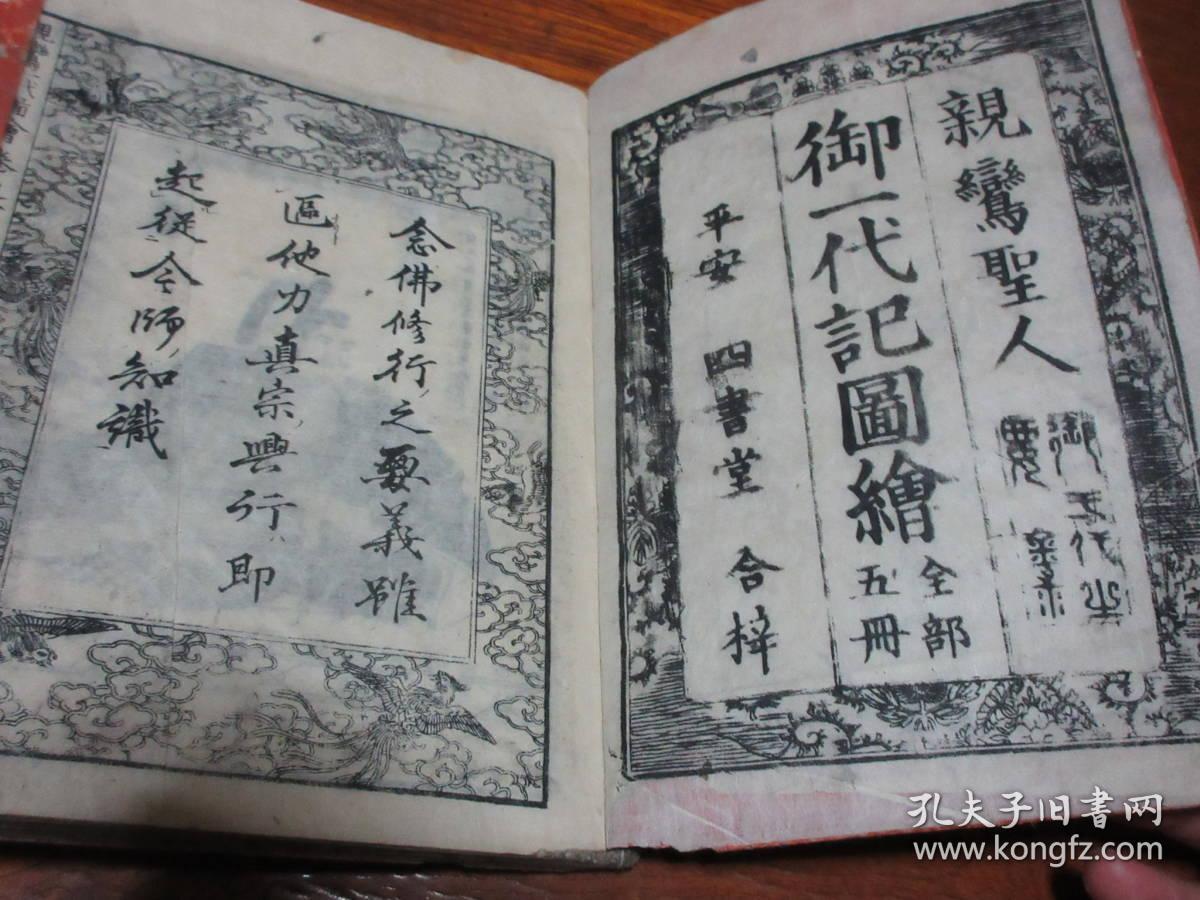 親鸞聖人
御一代記圖繪
全部
五冊
平安 四書堂 合梓
念佛修行之要義雖
區他力真宗興行即
起從今師知識
孔夫子旧书网
www.kongfz.com